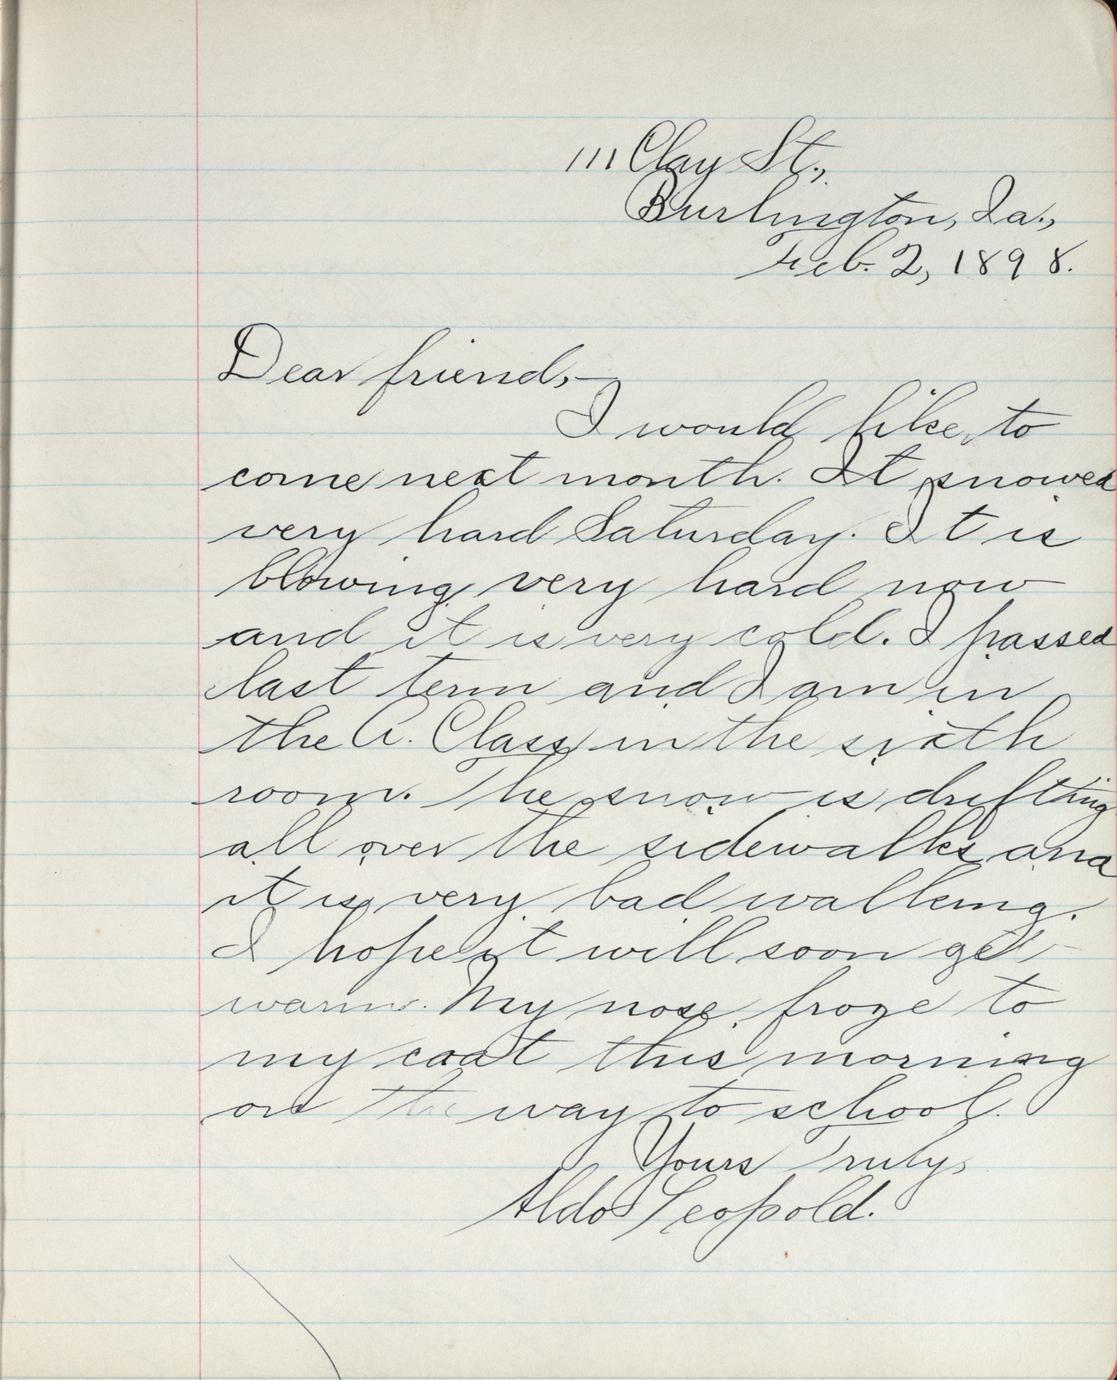 111 Clay St.,
Burlington, Ia.,
Feb. 2, 1898.
Dear friend,—
I would like to
come next month. It snowed
very hard Saturday. It is
blowing very hard now
and it is very cold. I passed
last term and I am in
the A. Class in the sixth
room. The snow is drifting
all over the sidewalks and
it is very bad walking.
I hope it will soon get
warm. My nose froze to
my coat this morning
on the way to school.
Yours Truly,
Aldo Leopold.